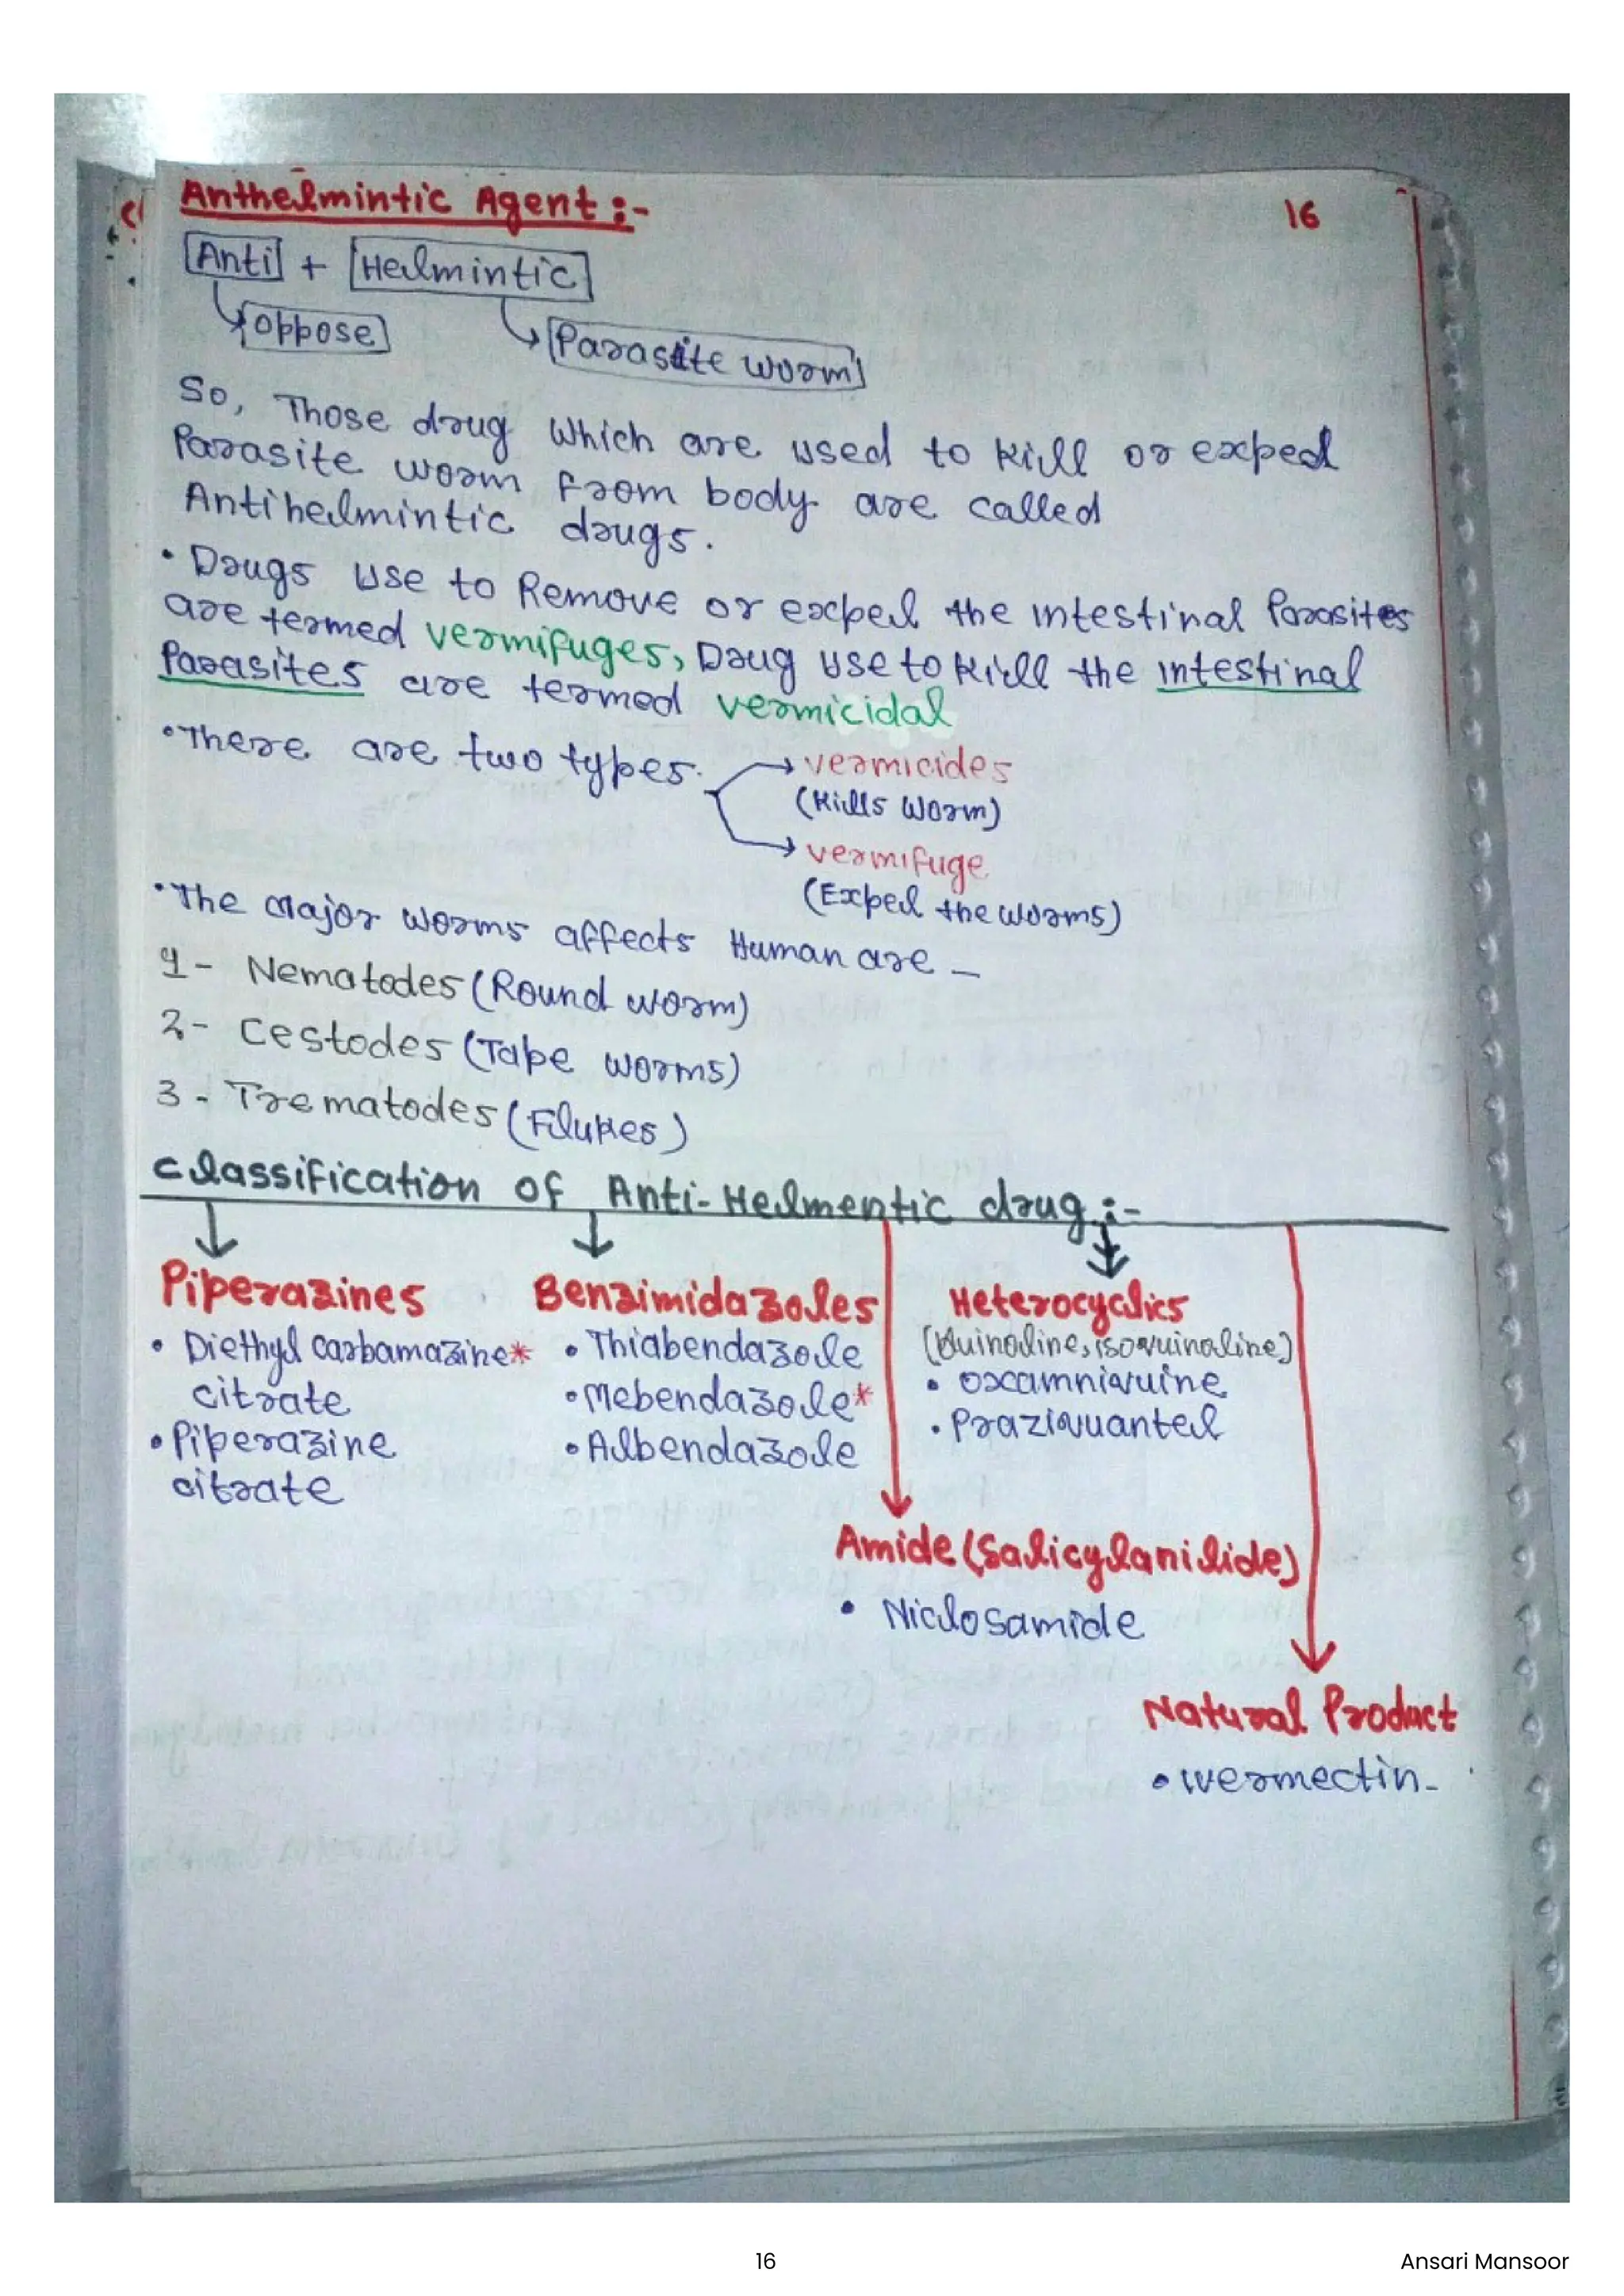 Anthelmintic Agent :-
16
Anti + Helmintic
oppose
Parasite worm
So, Those drug which are used to kill or expel
Parasite worm from body are called
Antihelmintic drugs.
• Drugs use to Remove or expel the intestinal Parasites
are termed vermifuges, Drug use to kill the intestinal
Parasites are termed vermicidal
• There are two types.
vermicides
(Kills worm)
vermifuge
(Expel the worms)
• The Major worms affects Human are –
1 - Nematodes (Round worm)
2 - Cestodes (Tape worms)
3 - Trematodes (Flukes)
Classification of Anti-Helmentic drug :-
Piperazines
• Diethyl carbamazine*
citrate
• Piperazine
citrate
Benzimidazoles
• Thiabendazole
• Mebendazole*
• Albendazole
Heterocyclics
(Quinoline, isoquinoline)
• Oxamniquine
• Praziquantel
Amide (Salicylanilide)
• Niclosamide
Natural Product
• Ivermectin
16
Ansari Mansoor